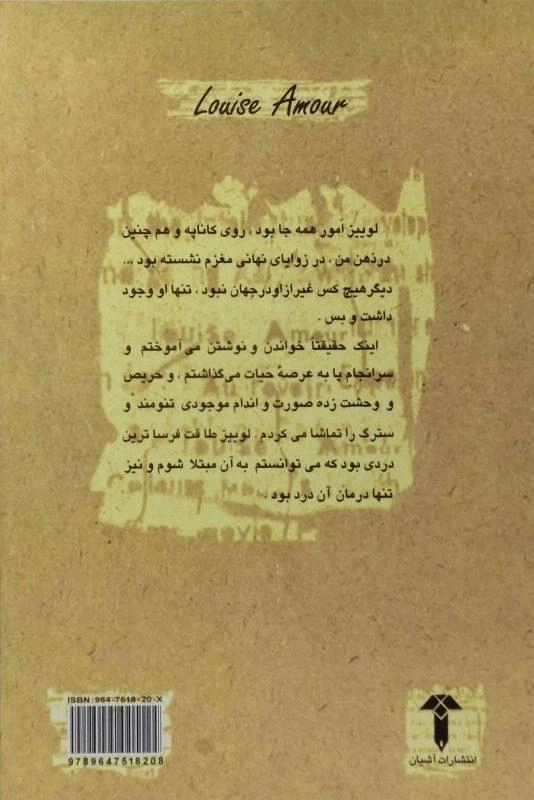 Louise Amour
لوییز اَمور همه جا بود ، روی کاناپه و هم چنین
درذهن من ، در زوایای نهانی مغزم نشسته بود ...
دیگرهیچ کس غیرازاودرجهان نبود ، تنها او وجود
داشت و بس .
اینک حقیقتاً خواندن و نوشتن می‌آموختم و
سرانجام پا به عرصهٔ حیات می‌گذاشتم ، و حریص
و وحشت زده صورت و اندام موجودی تنومند و
سترگ را تماشا می کردم . لوییز طاقت فرسا ترین
دردی بود که می توانستم به آن مبتلا شوم و نیز
تنها درمان آن درد بود .
ISBN:964-7518-20-X
9789647518208
انتشارات آشیان